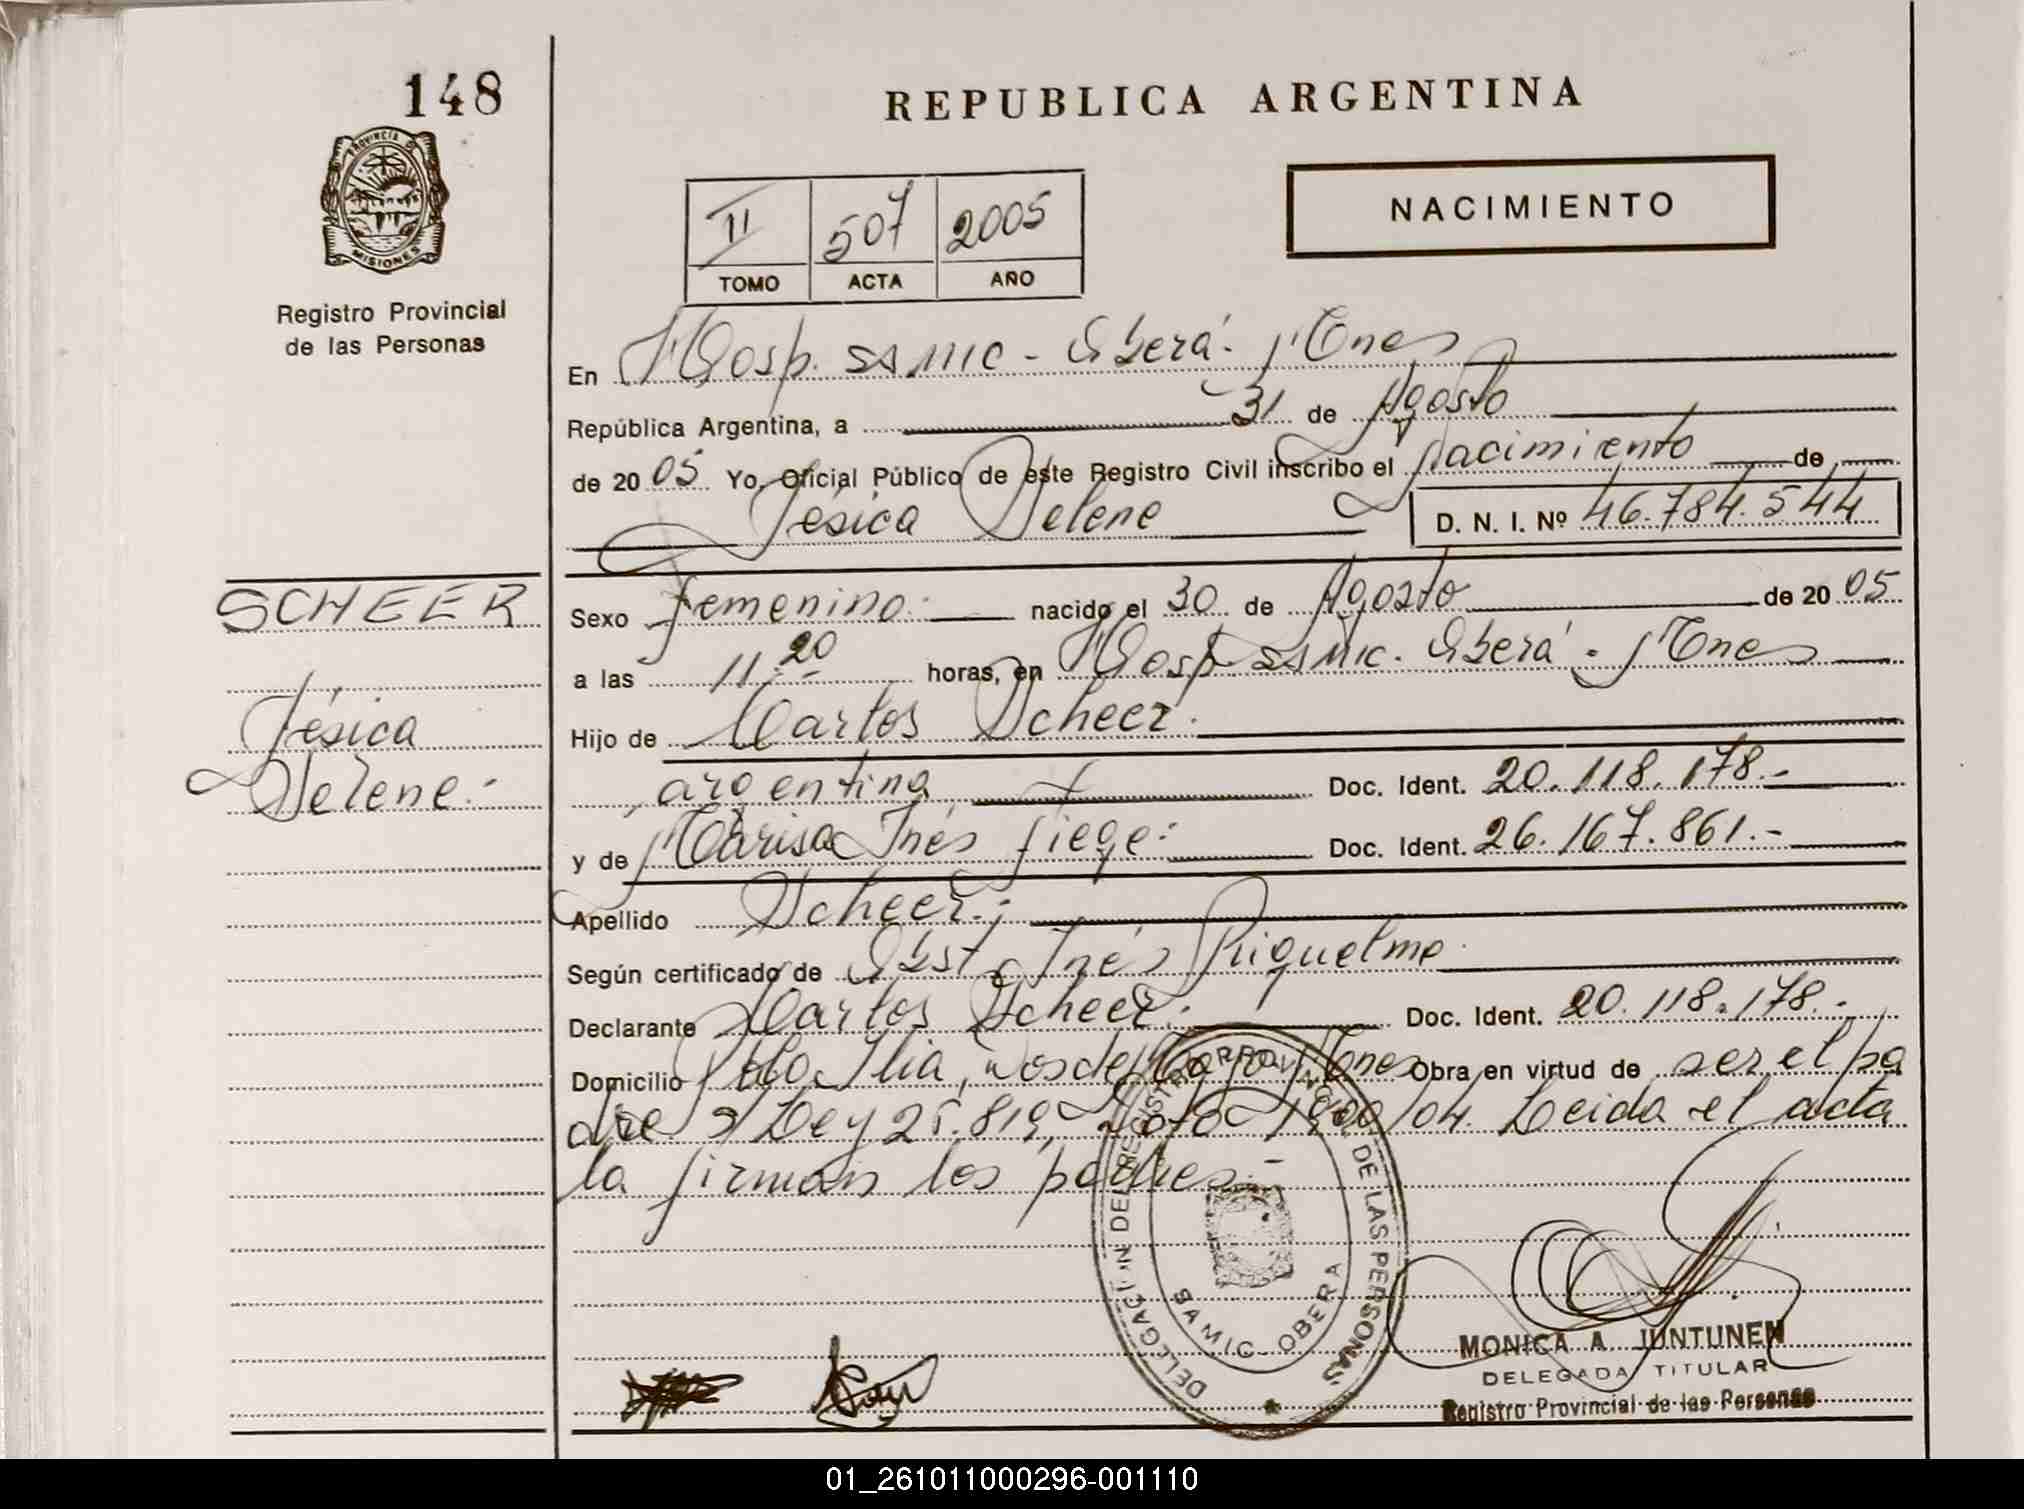 148
REPUBLICA ARGENTINA
PROVINCIA DE MISIONES
Registro Provincial
de las Personas
II 507 2005
TOMO ACTA AÑO
NACIMIENTO
En Hosp. SAMIC - Oberá - Mnes
República Argentina, a 31 de Agosto
de 2005 Yo, Oficial Público de este Registro Civil inscribo el Nacimiento de
Jésica Selene D. N. I. Nº 46.784.544
SCHEER
Sexo femenino nacido el 30 de Agosto de 2005
a las 11:20 horas, en Hosp. SAMIC - Oberá - Mnes
Jésica
Selene.-
Hijo de Carlos Scheer.
argentina Doc. Ident. 20.118.178.-
y de Marisa Inés Fiege.- Doc. Ident. 26.167.861.-
Apellido Scheer.-
Según certificado de Obst. Inés Riquelme
Declarante Carlos Scheer. Doc. Ident. 20.118.178.-
Domicilio Mnes Obra en virtud de ser el pa
dre Ley 25.819, /04. Leida el acta
la firman los padres.-
DELEGACION DEL REGISTRO PROVINCIAL DE LAS PERSONAS
SAMIC - OBERA
MONICA A. JUNTUNEN
DELEGADA TITULAR
Registro Provincial de las Personas
01_261011000296-001110